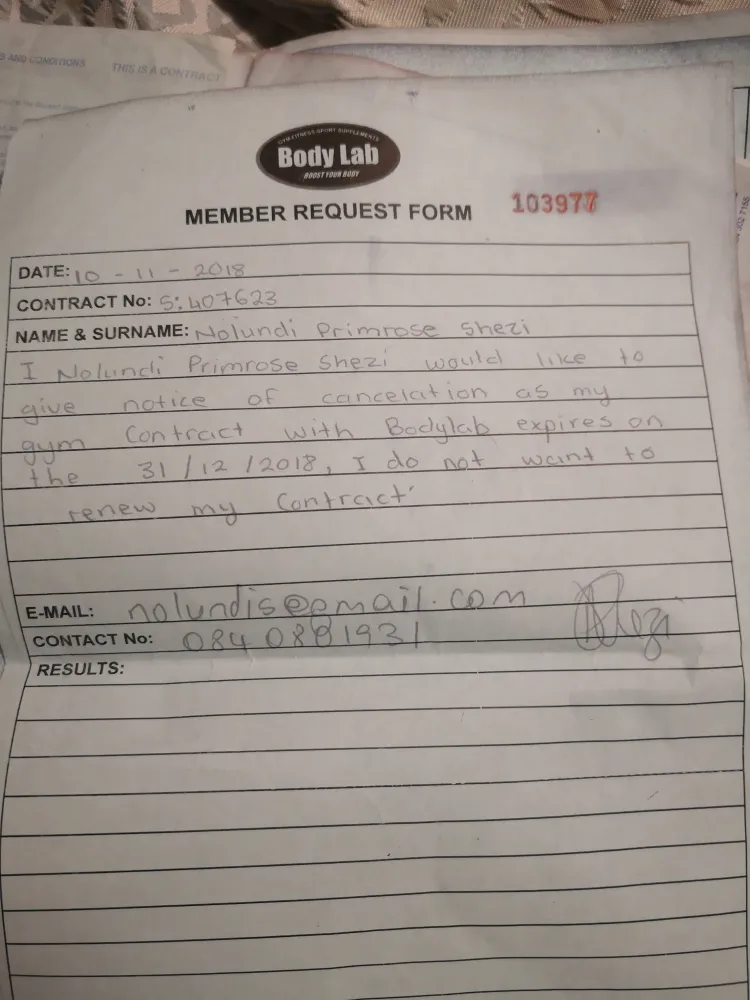 S AND CONDITIONS
THIS IS A CONTRACT
GYM FITNESS SPORT SUPPLEMENTS
Body Lab
BOOST YOUR BODY
MEMBER REQUEST FORM
103977
DATE: 10 - 11 - 2018
CONTRACT No: S:407623
NAME & SURNAME: Nolundi Primrose Shezi
I Nolundi Primrose Shezi would like to
give notice of cancelation as my
gym Contract with Bodylab expires on
the 31/12/2018, I do not want to
renew my Contract.
E-MAIL: nolundis@gmail.com
CONTACT No: 084 0881931
RESULTS: